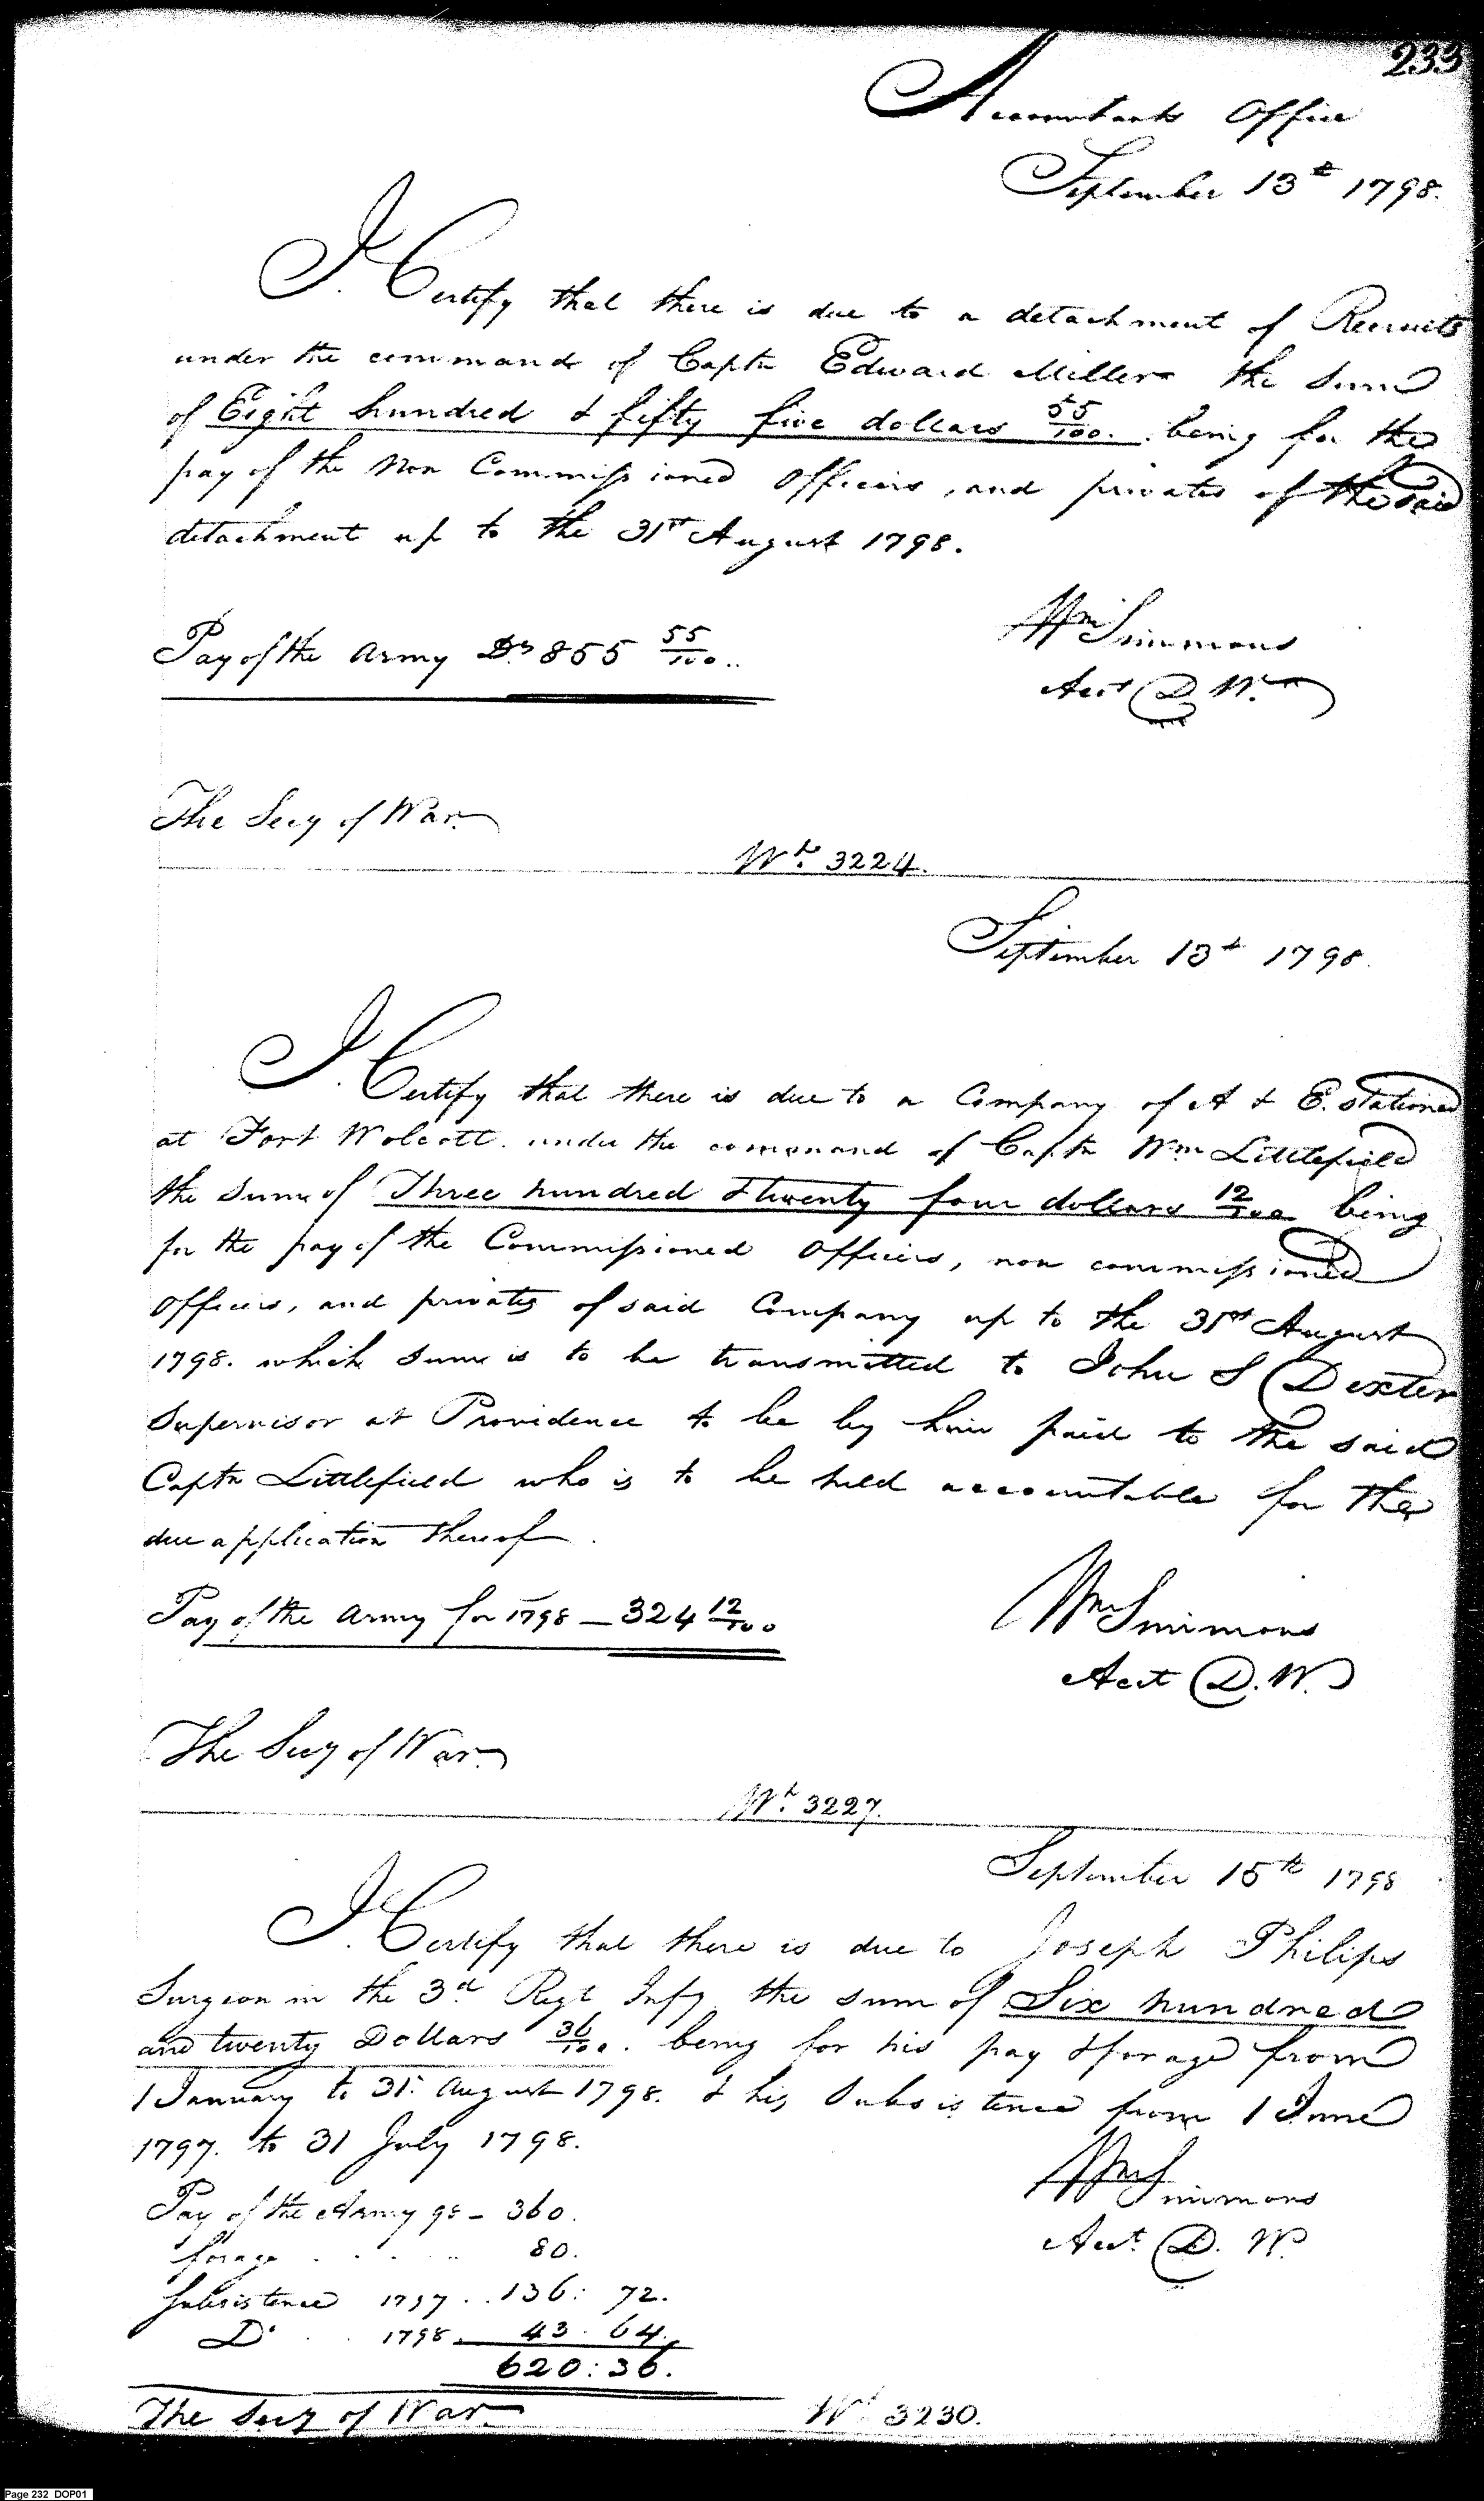 233
Accountants Office
September 13th 1798.
I Certify that there is due to a detachment of Recruits
under the command of Captn Edward Miller the Sum
of Eight hundred & fifty five dollars 55/100. being for the
pay of the Non Commissioned Officers, and privates of the said
detachment up to the 31st August 1798.
Pay of the Army Drs 855 55/100..
Wm Simmons
Acct D. W.
The Secy of War.
Wt. 3224.
September 13th 1798.
I Certify that there is due to a Company of A & E. stationed
at Fort Wolcott. under the command of Captn Wm Littlefield
the Sum of Three hundred & twenty four dollars 12/100 being
for the pay of the Commissioned Officers, non commissioned
Officers, and privates of said Company up to the 31st August
1798. which Sum is to be transmitted to John S Dexter
Supervisor at Providence to be by him paid to the said
Captn Littlefield who is to be held accountable for the
due application thereof.
Pay of the Army for 1798 — 324 12/100
Wm Simmons
Acct D. W.
The Secy of War.
Wt. 3227.
September 15th 1798
I Certify that there is due to Joseph Philips
Surgeon in the 3d Regt Infy the sum of Six hundred
and twenty Dollars 36/100. being for his pay & forage from
1 January to 31. August 1798. & his Subsistence from 1 June
1797. to 31 July 1798.
Pay of the Army 98 – 360.
forage . . . 80.
Subsistence 1797 . . 136: 72.
Do . . 1798. 43. 64.
620: 36.
Wm Simmons
Acct. D. W.
The Secy of War.
Wt 3230.
Page 232 DOP01